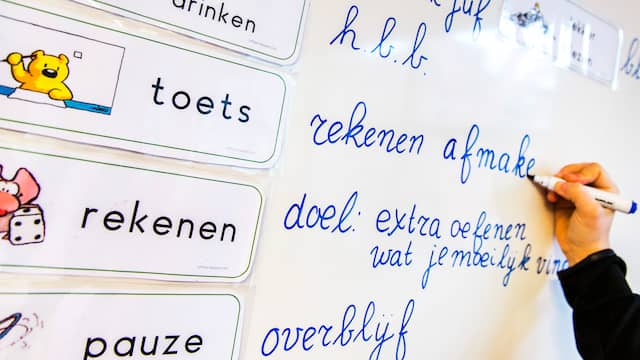 drinken
toets
rekenen
pauze
juf
h.b.b.
rekenen afmake
doel: extra oefenen
wat je moeilijk vind
overblijf